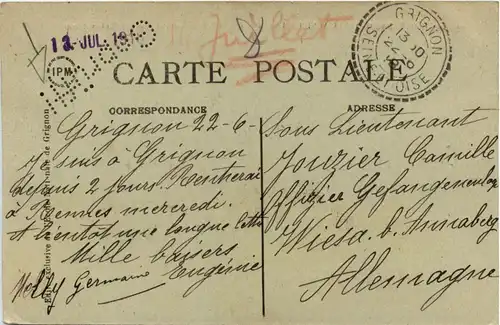 13. JUL. 19
IPM
GRIGNON
13 10
22 - 6
SEINE ET OISE
CARTE POSTALE
CORRESPONDANCE
ADRESSE
Grignon 22-6-
Je suis à Grignon
depuis 2 jours. Rentrerai
à Rennes mercredi.
A bientôt une longue lettre
Mille baisers
Nelly Germaine Eugénie
Sous Lieutenant
Jouzier Camille
Officier Gefangenenlager
Wiesa b. Annaberg
Allemagne